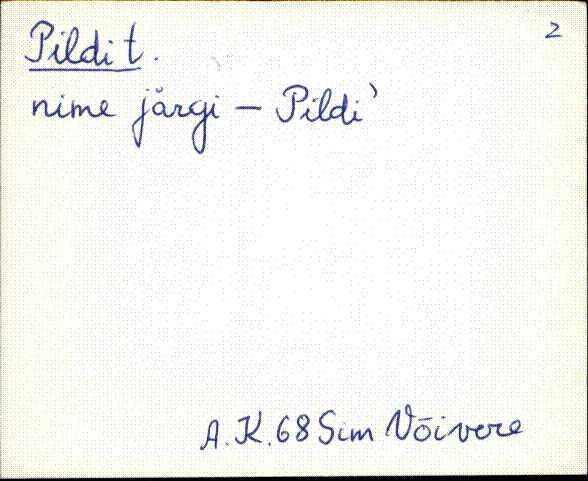 2
Pildi t.
nime järgi — Pildi`
A. K. 68 Sim Võivere